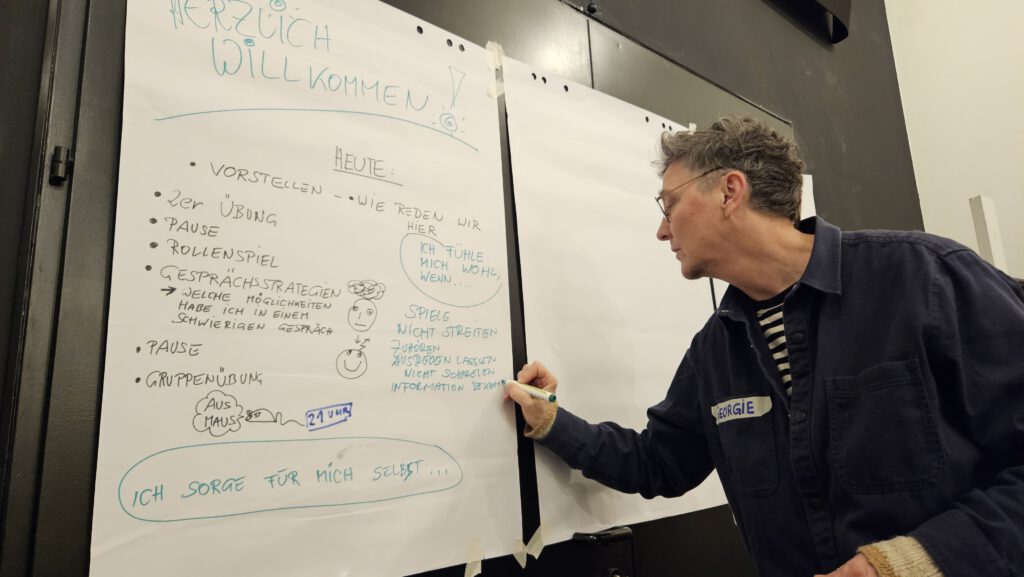 HERZLICH
WILLKOMMEN!
HEUTE:
• VORSTELLEN – • WIE REDEN WIR
HIER
• 2er ÜBUNG
• PAUSE
• ROLLENSPIEL
• GESPRÄCHSSTRATEGIEN
→ WELCHE MÖGLICHKEITEN
HABE ICH IN EINEM
SCHWIERIGEN GESPRÄCH
• PAUSE
• GRUPPENÜBUNG
AUS
MAUS
21 UHR
ICH FÜHLE
MICH WOHL,
WENN....
SPIELE
NICHT STREITEN
ZUHÖREN
AUSREDEN LASSEN
NICHT SCHREIEN
INFORMATION BEKOMM
ICH SORGE FÜR MICH SELBST ...
GEORGIE